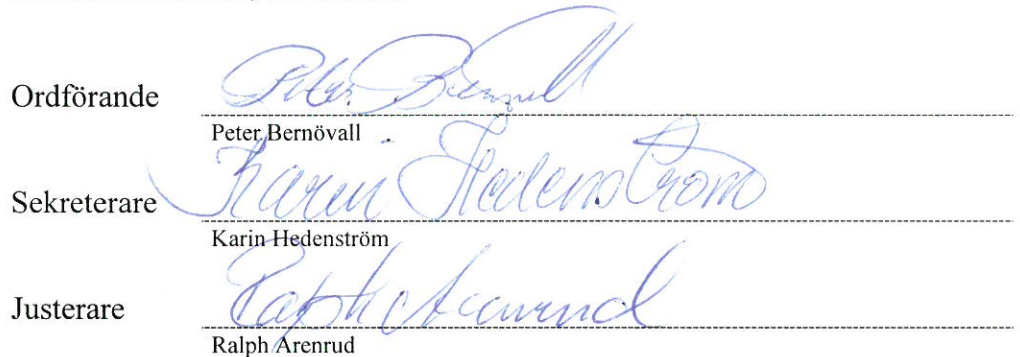 Ordförande Peter Bernövall
Peter Bernövall
Sekreterare Karin Hedenström
Karin Hedenström
Justerare Ralph Arenrud
Ralph Arenrud